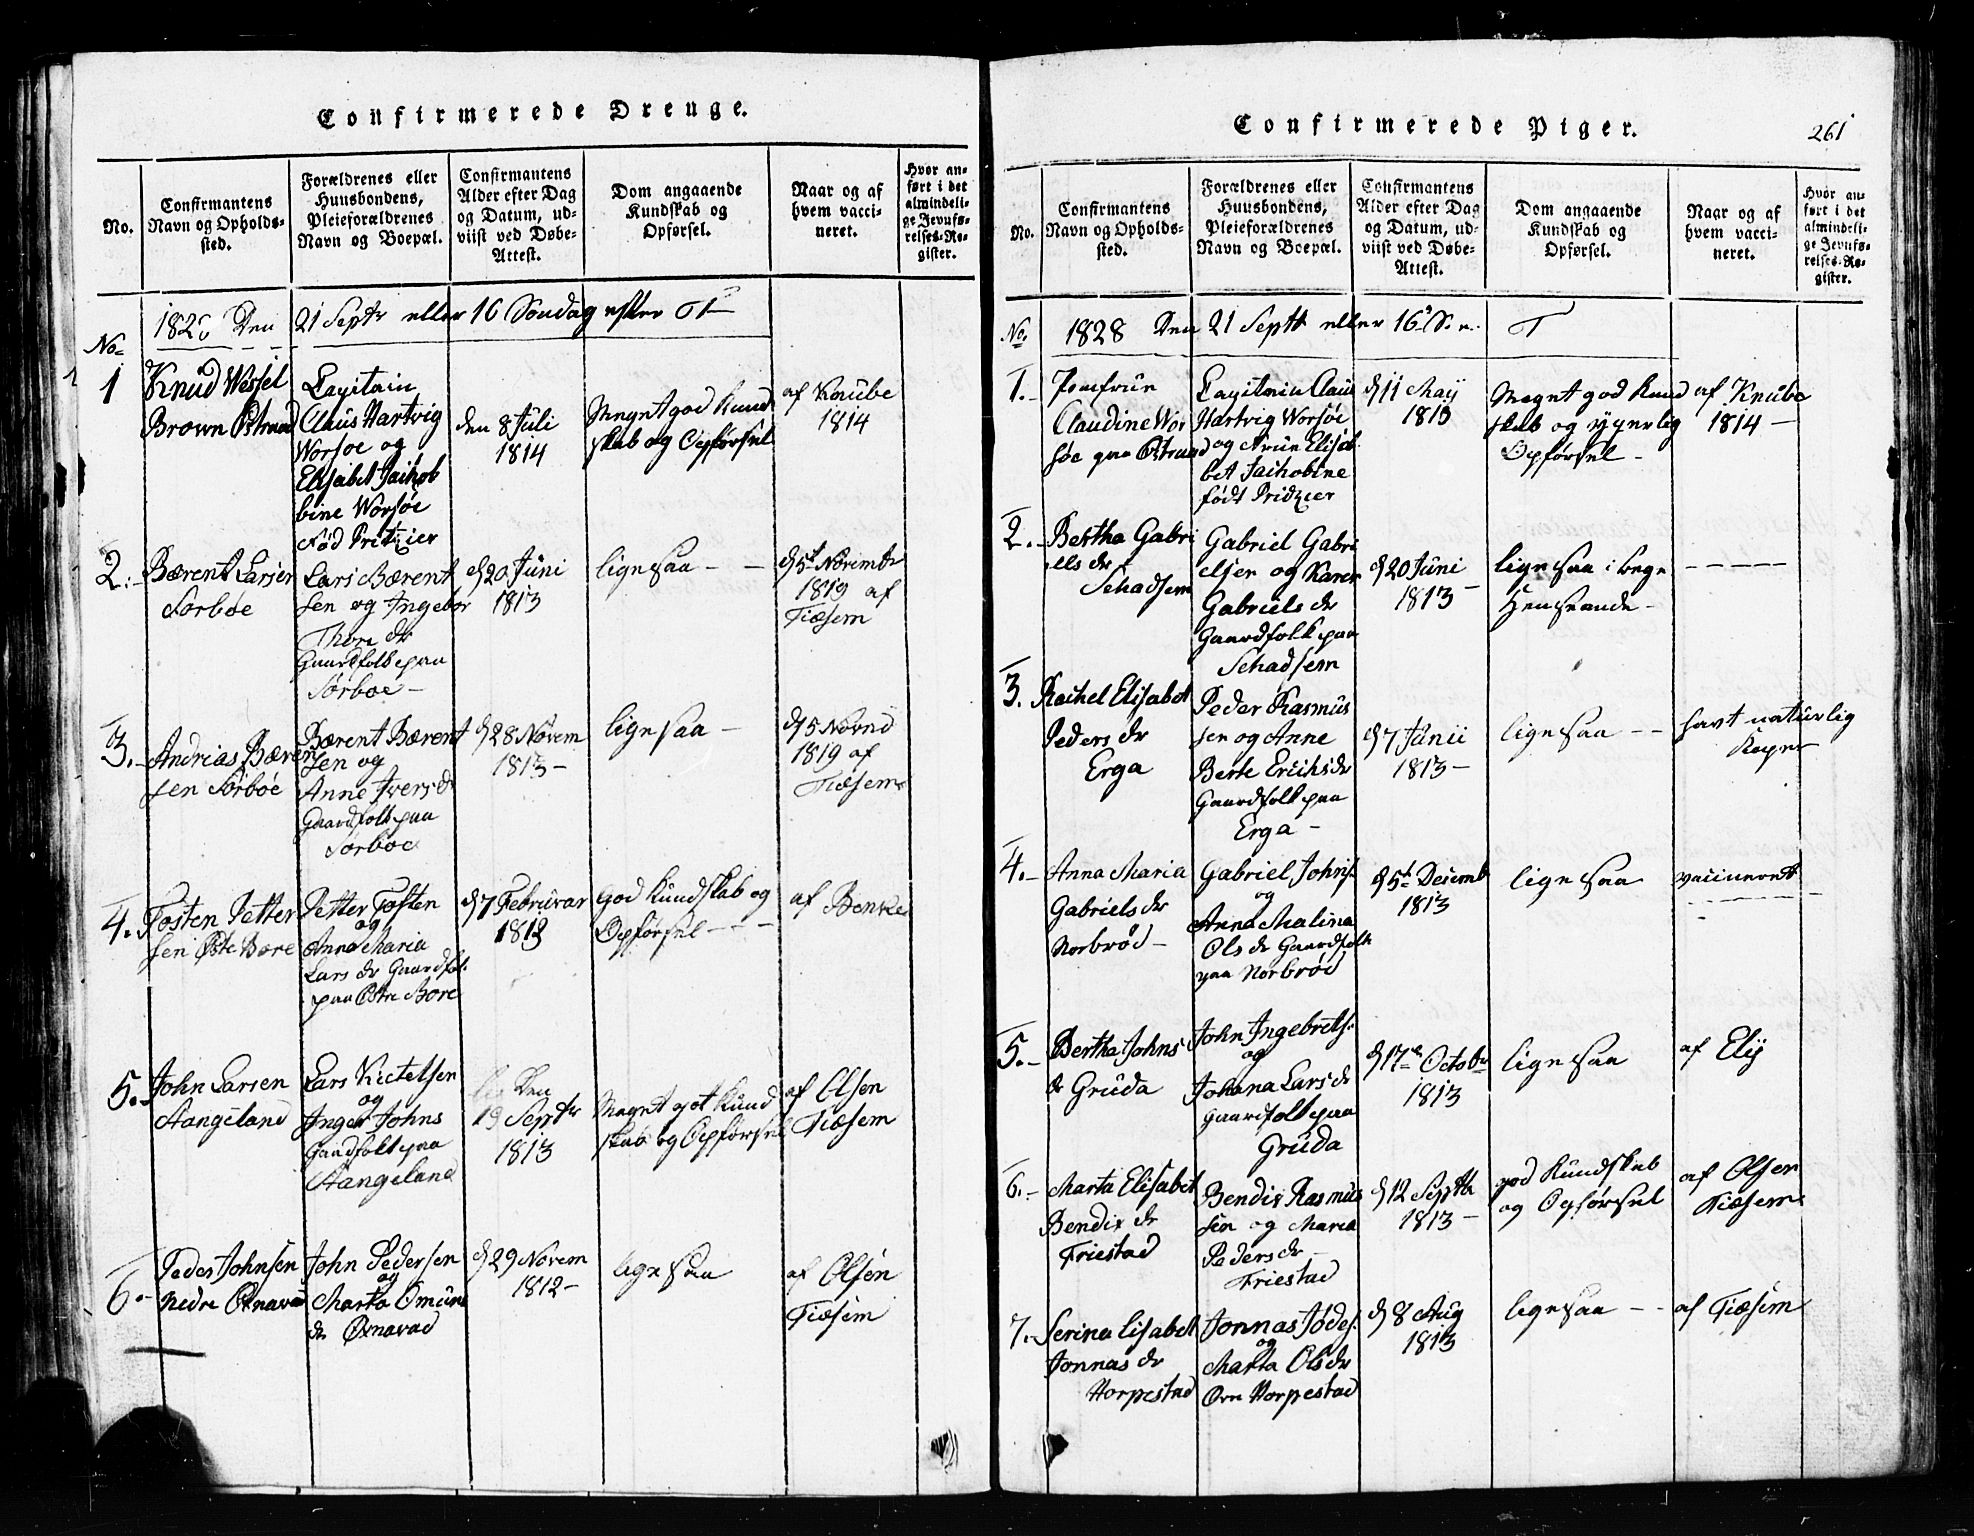 Confirmerede Drenge.
No.
Confirmantens
Navn og Opholds-
sted.
Forældrenes eller
Huusbondens,
Pleieforældrenes
Navn og Boepæl.
Confirmantens
Alder efter Dag
og Datum, ud-
viist ved Døbe-
Attest.
Dom angaaende
Kundskab og
Opførsel.
Naar og af
hvem vacci-
neret.
Hvor an-
ført i det
almindeli-
ge Jevnfø-
relses-Re-
gister.
No
1828 Den 21 Septr eller 16 Søndag efter T
1
Knud Wessel
Brown Østraad
Capitain
Claus Hartvig
Worsøe og
Elisabet Jaichob
bine Worsøe
Fød Pritzier
den 8 Juli
1814
Meget god Kund
skab og Opførsel
af Knube
1814
2.
Bærent Larsen
Sørbøe
Lars Bærent
sen og Ingebor
Thore dr
Gaardfolk paa
Sørboe
d 20 Juni
1813
ligesaa
d 5t Novembr
1819 af
Tiæsem
3.
Andrias Bæren
sen Sørbøe
Bærent Bærent
sen og
Anne Ivers dr
Gaardfolk paa
Sørboe
d 28 Novem
1813
ligesaa
d 5 Novnd
1819 af
Tiæsem
4.
Tosten Petter
sen Østre Bore
Petter Tosten
og
Anna Maria
Lars dr Gaardfol
paa Østre Bore
d 7 Februar
1813
God Kundskab og
Opførsel
af Benke
5.
John Larsen
Aangeland
Lars Kietelsen
og
Inger Johns
Gaardfolk paa
Aangeland
Den
19 Septr
1813
Meget got Kund
skab og Opførsel
af Olsen
Tiæsem
6.
Peder Johnsen
Nedre Øxnavad
John Pedersen
og
Marta Omun
dr Øxnavad
d 29 Novem
1812
ligesaa
af Olsen
Tiæsem
Confirmerede Piger.
261
No.
Confirmantens
Navn og Opholds-
sted.
Forældrenes eller
Huusbondens,
Pleieforældrenes
Navn og Boepæl.
Confirmantens
Alder efter Dag
og Datum, ud-
viist ved Døbe-
Attest.
Dom angaaende
Kundskab og
Opførsel.
Naar og af
hvem vacci-
neret.
Hvor an-
ført i det
almindeli-
ge Jevnfø-
relses-Re-
gister.
No.
1828 Den 21 Septr eller 16 S. e. T
1.
Jomfrue
Claudine Wor
søe paa Østraad
Capitain Clau
Hartvig Worsøe
og Frue Elisa
bet Jaichobine
født Pridzier
d 11 Maij
1813
Meget god Kund
skab og yperlig
Opførsel
af Knube
1814
2.
Bertha Gabri
els dr
Schadsem
Gabriel Gabri
elsen og Karen
Gabriels dr
Gaardfolk paa
Schadsem
d 20 Juni
1813
ligesaa i bege
Henseende
3.
Rachel Elisabet
Peders dr
Erga
Peder Rasmus
sen og Anne
Berte Erichs dr
Gaardfolk paa
Erga
d 7 Junii
1813
ligesaa
havt naturlig
Koper
4.
Anna Maria
Gabriels dr
Norbrød
Gabriel Johns
og
Anna Malina
Ols dr Gaardfolk
paa Norbrød
d 5t Decemb
1813
ligesaa
vacineret
5.
Bertha Johns
dr Gruda
John Ingebrets.
og
Johana Lars dr
Gaardfolk paa
Gruda
d 17de Octobr
1813
ligesaa
af Elij
6.
Marta Elisabet
Bendix dr
Friestad
Bendix Rasmus
sen og Maria
Peders dr
Friestad
d 12 Septbr
1813
god Kundskab
og Opførsel
af Olsen
Tiæsem
7.
Serina Elisabet
Jonnas dr
Horpestad
Jonnas Jødes.
og
Marta Ols dr
Øvr Horpestad
d 8 Aug
1813
ligesaa
af Tiæsem